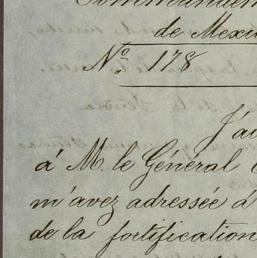 Commandem
de Mexi
No. 178
J'ai
á M. le Général
m'avez adressée d
de la fortification